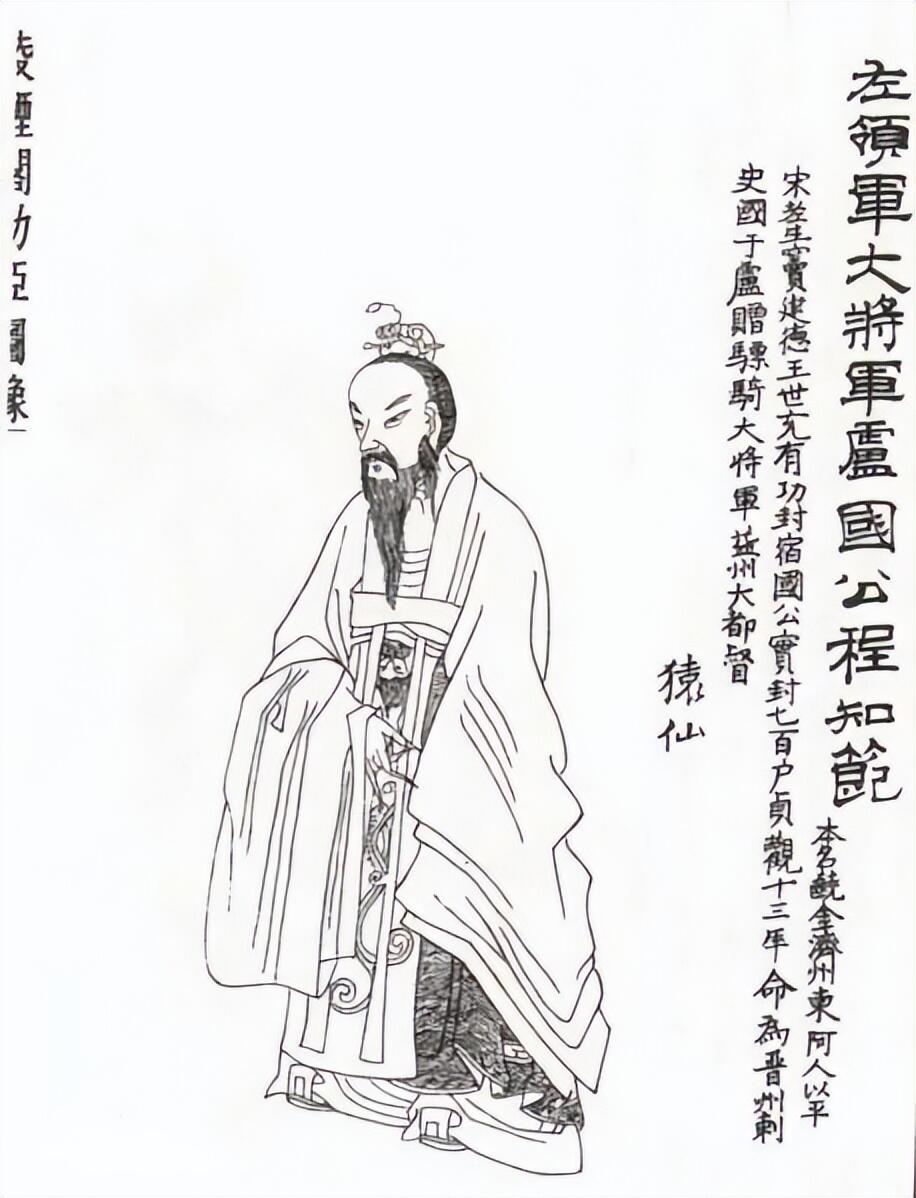 左領軍大將軍盧國公程知節
本名齩金濟州東阿人以平
宋老生竇建德王世充有功封宿國公實封七百户貞觀十三年命為晋州刺
史國于盧贈驃騎大將軍益州大都督
猿仙
凌煙閣功臣圖像